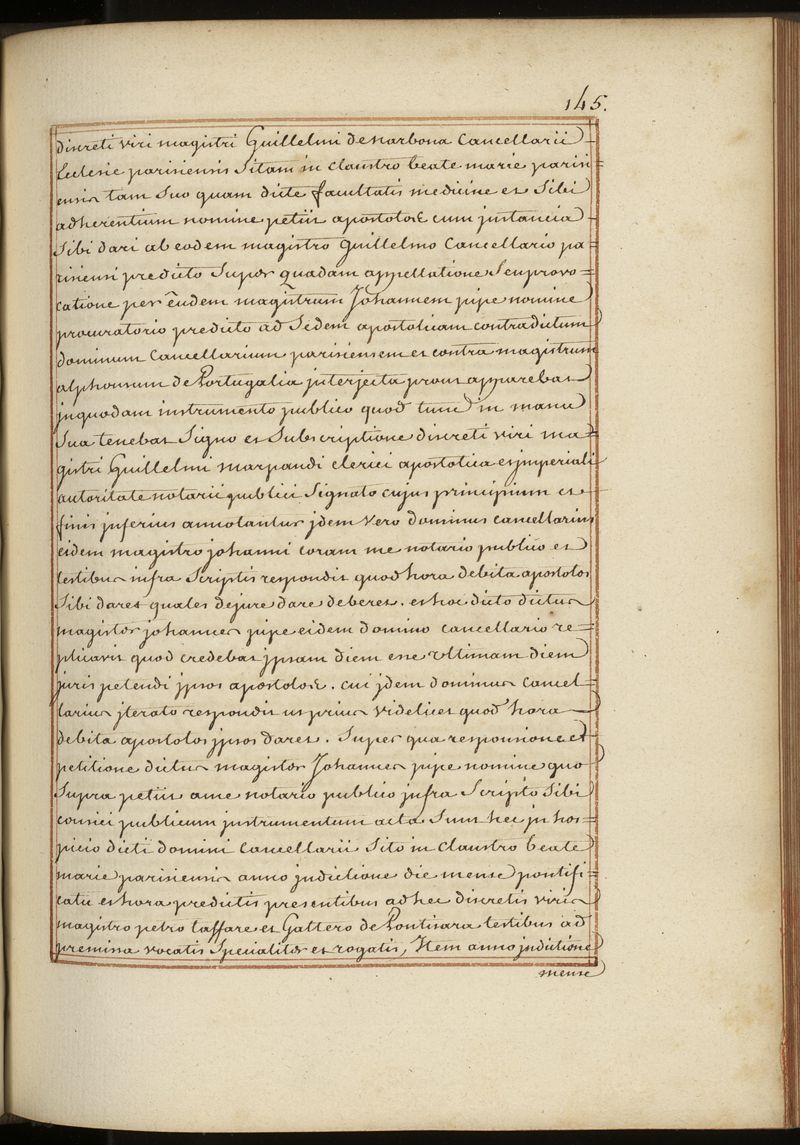 145.
discreti viri magistri Guillelmi de Narbona Cancellarii
Ecclesie parisiensis Sitam in Claustro beate marie parisi
ensis tam Suo quam dicte facultatis medicine et Sibi
adherentium nomine petiit apostolos cum justancia
Sibi dari ab eodem magistro Guillelmo Cancellario pa =
risiensi predicto Super quadam appellatione Seu provo =
catione per eundem magistrum Johannem pipe nomine
procuratorio predicto ad Sedem apostolicam contra dictum
dominum Cancellarium parisiensem et contra magistrum
alphonsum de Portugalia jnterjecta prout apparebat
jn quodam instrumento publico quod tunc in manu
Sua tenebat Signo et Subscriptione discreti viri ma =
gistri Guillelmi marpaudi clerici apostolica et jmperiali
autoritate notarii publici Signato cujus principium et
finis jnferius annotantur jdem vero dominus cancellarius
eidem magistro johanni coram me notario publico et
testibus infra Scriptis respondit quod hora debita apostolos
Sibi daret quales de jure dare deberet. et hoc dicto dictus
magister johannes pipe eidem domino cancellario re =
plicavit quod credebat jpsam diem esse Ultimam diem
juris petendi jpsos apostolos. cui jdem dominus Cancel
larius jterato respondit ut prius videlicet quod hora
debita apostolos jpsos daret. Super qua responsione et
petitione dictus magister Johannes pipe nomine quo
Supra petiit a me notario publico jnfra Scripto Sibi
confici publicum jnstrumentum acta Sunt hec jn hos =
picio dicti domini Cancellarii Sito in Claustro beate
marie parisiensis anno jndictione die mense pontifi =
catu et hora predictis presentibus ad hec discretis viris
magistro petro taffare et Gattero de Pontisara testibus ad
premissa vocatis Specialiter et rogatis, Item anno jndictione
mense